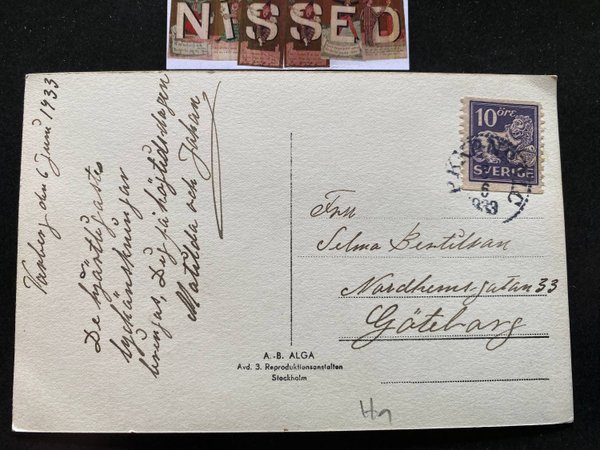 NISSED
Varberg den 6 Juni 1933
De hjärtligaste
lyckönskningar
bringas Dig på högtidsdagen
Matilda och Johan
10 ÖRE
SVERIGE
Fru
Selma Bentilson
Nordhemsgatan 33
Göteborg
A.-B. ALGA
Avd. 3. Reproduktionsanstalten
Stockholm